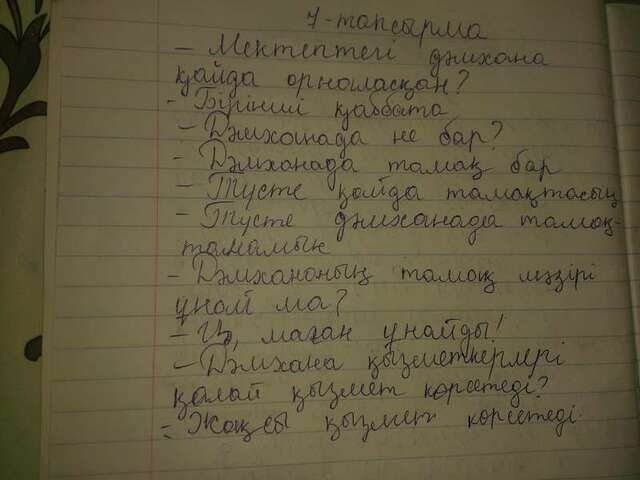 7-тапсырма
- Мектептегі дәмхана
қайда орналасқан?
- Бірінші қаббата
- Дәмханада не бар?
- Дәмханада тамақ бар
- Түсте қайда тамақтасың
- Түсте дәмханада тамақ-
танамын
- Дәмхананың тамақ мәзірі
ұнай ма?
- Иә, маған ұнайды!
- Дәмхана қызметкерлері
қалай қызмет көрсетеді?
- Жақсы қызмет көрсетеді.